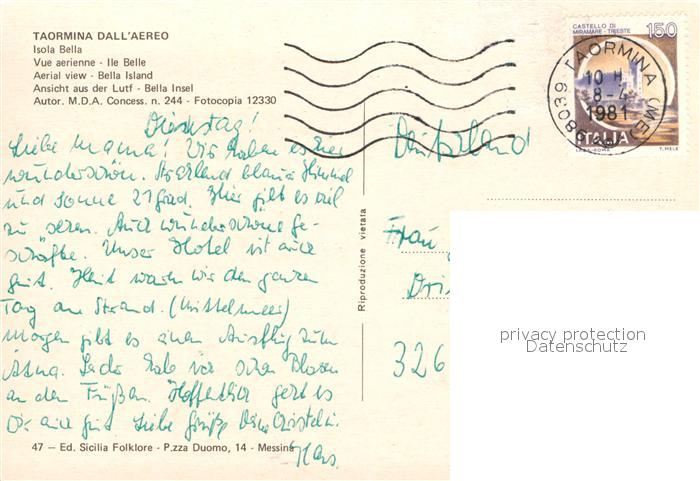 TAORMINA DALL'AEREO
Isola Bella
Vue aerienne - Ile Belle
Aerial view - Bella Island
Ansicht aus der Lutf - Bella Insel
Autor. M.D.A. Concess. n. 244 - Fotocopia 12330
CASTELLO DI
MIRAMARE - TRIESTE
150
ITALIA
I.P.Z.S. - ROMA
T. MELE
98039 TAORMINA (ME)
10 H
8-4
1981
Dienstag!
Liebe Mama! Wir haben es hier
wunderschön. Strahlend blauer Himmel
und Sonne 21 Grad. Hier gibt es viel
zu sehen. Auch wunderschöne Ge-
schäfte. Unser Hotel ist auch
gut. Heut waren wir den ganzen
Tag am Strand. (Mittelmeer)
Morgen gibt es einen Ausflug zum
Ätna. Leider habe wir schon Blasen
an den Füßen. Hoffentlich geht es
Dir auch gut. Liebe Grüße
Deutschland
Frau
326
Riproduzione vietata
privacy protection
Datenschutz
47 - Ed. Sicilia Folklore - P.zza Duomo, 14 - Messina